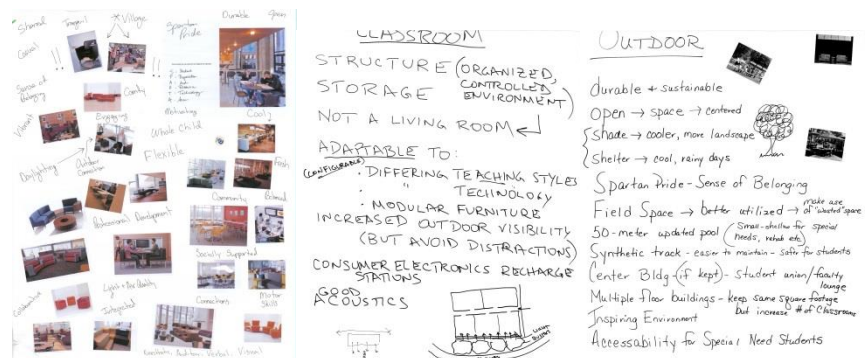 Shared
Tranquil
Village
Durable
Open
Casual
Spartan
Pride
Sense of
Belonging
Comfy
Motivating
Cozy
Vibrant
Engaging
Whole Child
Daylighting
Outdoor
Connection
Flexible
Fresh
Community
Professional Development
Socially Supported
Light + Air Quality
Collaborative
Integrated
Connections
Motor
Skills
Auditory, Verbal, Visual
CLASSROOM
STRUCTURE (ORGANIZED,
CONTROLLED
ENVIRONMENT)
STORAGE
NOT A LIVING ROOM
ADAPTABLE TO:
(CONFIGURABLE)
· DIFFERING TEACHING STYLES
· " TECHNOLOGY
· MODULAR FURNITURE
INCREASED OUTDOOR VISIBILITY
(BUT AVOID DISTRACTIONS)
CONSUMER ELECTRONICS RECHARGE
STATIONS
GOOD
ACOUSTICS
OUTDOOR
durable & sustainable
open → space → centered
shade → cooler, more landscape
shelter → cool, rainy days
Spartan Pride - Sense of Belonging
Field Space → better utilized → make use
of "wasted" space
50-meter updated pool (Small-shallow for special
needs, rehab etc)
Synthetic track - easier to maintain - safer for students
Center Bldg (if kept) - student union/faculty
lounge
Multiple floor buildings - keep same square footage
but increase # of Classrooms
Inspiring Environment
Accessability for Special Need Students